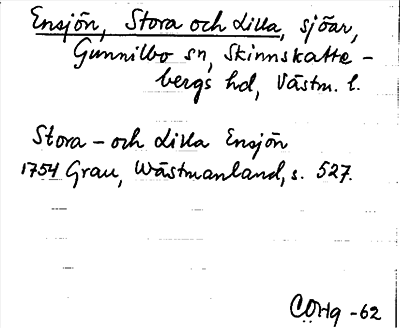 Ensjön, Stora och Lilla, sjöar,
Gunnilbo sn, Skinnskatte-
bergs hd, Västm. l.
Stora - och Lilla Ensjön
1754 Grau, Wästmanland, s. 527.
-62